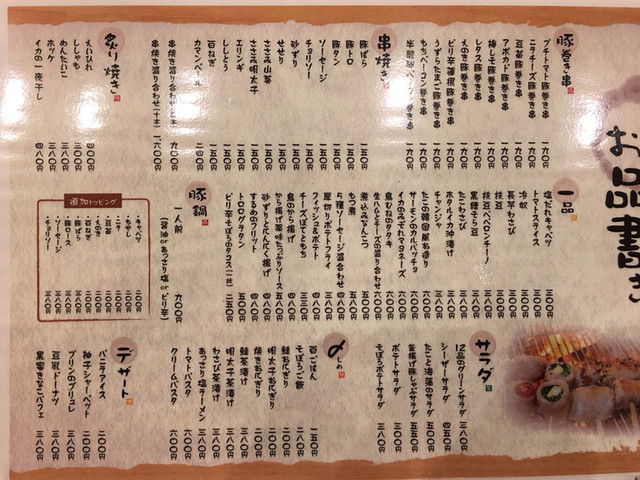 お品書き
豚巻き串
プチトマト豚巻き串 一九〇円
ニラチーズ豚巻き串 一九〇円
豆苗豚巻き串 一九〇円
アボカド豚巻き串 一九〇円
梅しそ豚巻き串 一九〇円
レタス豚巻き串 一九〇円
えのき豚巻き串 一九〇円
ピリ辛蒟蒻豚巻き串 一九〇円
うずらたまご豚巻き串 一九〇円
もちベーコン巻き串 一九〇円
串焼き
豚ばら 一五〇円
豚トロ 一五〇円
豚タン 一五〇円
ソーセージ 一五〇円
チョリソー 一五〇円
砂ずり 一五〇円
せせり 一五〇円
ささみ山葵 一五〇円
ささみ明太子 一五〇円
エリンギ 一五〇円
ししとう 一五〇円
白ねぎ 一五〇円
カマンベール 二四〇円
串焼き盛り合わせ(五本)
串焼き盛り合わせ(十本) 一六〇〇円
炙り焼き
えいひれ 四〇〇円
ししゃも 三八〇円
めんたいこ 三八〇円
ホッケ 三八〇円
イカの一夜干し 四八〇円
一品
塩だれキャベツ 三〇〇円
トマトスライス 三〇〇円
冷奴
長芋わさび
枝豆
枝豆ペペロンチーノ
黒糖そら豆
たこわさび
ホタルイカ沖漬け
チャンジャ
たこの韓国風お造り
サーモンのカルパッチョ
イカのみぞれマヨネーズ
鳥むねのタタキ
生ハムとチーズの盛り合わせ
煮込みとんこつ
もつ煮
5種ソーセージ盛合わせ
厚切りポテトフライ
フィッシュ&ポテト
チーズぽてともち
鳥のから揚げ
から揚げ薬味たっぷりソース
砂ずりとにんにく揚げ
すずめのフリット
トロログラタン
ピリ辛そぼろのタコス(一枚) 二五〇円
豚鍋
一人前 九〇〇円
(醤油 or あっさり塩 or ピリ辛)
追加トッピング
・キャベツ 二〇〇円
・もやし
・ニラ
・豆苗
・えのき
・白ねぎ
・豚ばら
・豚ロース
・ソーセージ 三〇〇円
・チョリソー 三〇〇円
サラダ
12品のグリーンサラダ 三八〇円
シーザーサラダ 四五〇円
たこと海藻のサラダ 五〇〇円
釜揚げ豚しゃぶサラダ 五五〇円
ポテトサラダ 三〇〇円
そぼろポテトサラダ 三五〇円
〆 しめ
白ごはん 一五〇円
そぼろご飯 三八〇円
鮭おにぎり 二〇〇円
明太子おにぎり 二〇〇円
焼きおにぎり 二〇〇円
明太子茶漬け 三八〇円
鮭茶漬け 三八〇円
わさび茶漬け 三八〇円
あっさり塩ラーメン 三八〇円
トマトパスタ 六〇〇円
クリームパスタ 六〇〇円
デザート
バニラアイス 二〇〇円
柚子シャーベット 二〇〇円
プリンのブリュレ 三八〇円
豆乳ドーナツ 三八〇円
黒蜜きなこパフェ 三八〇円